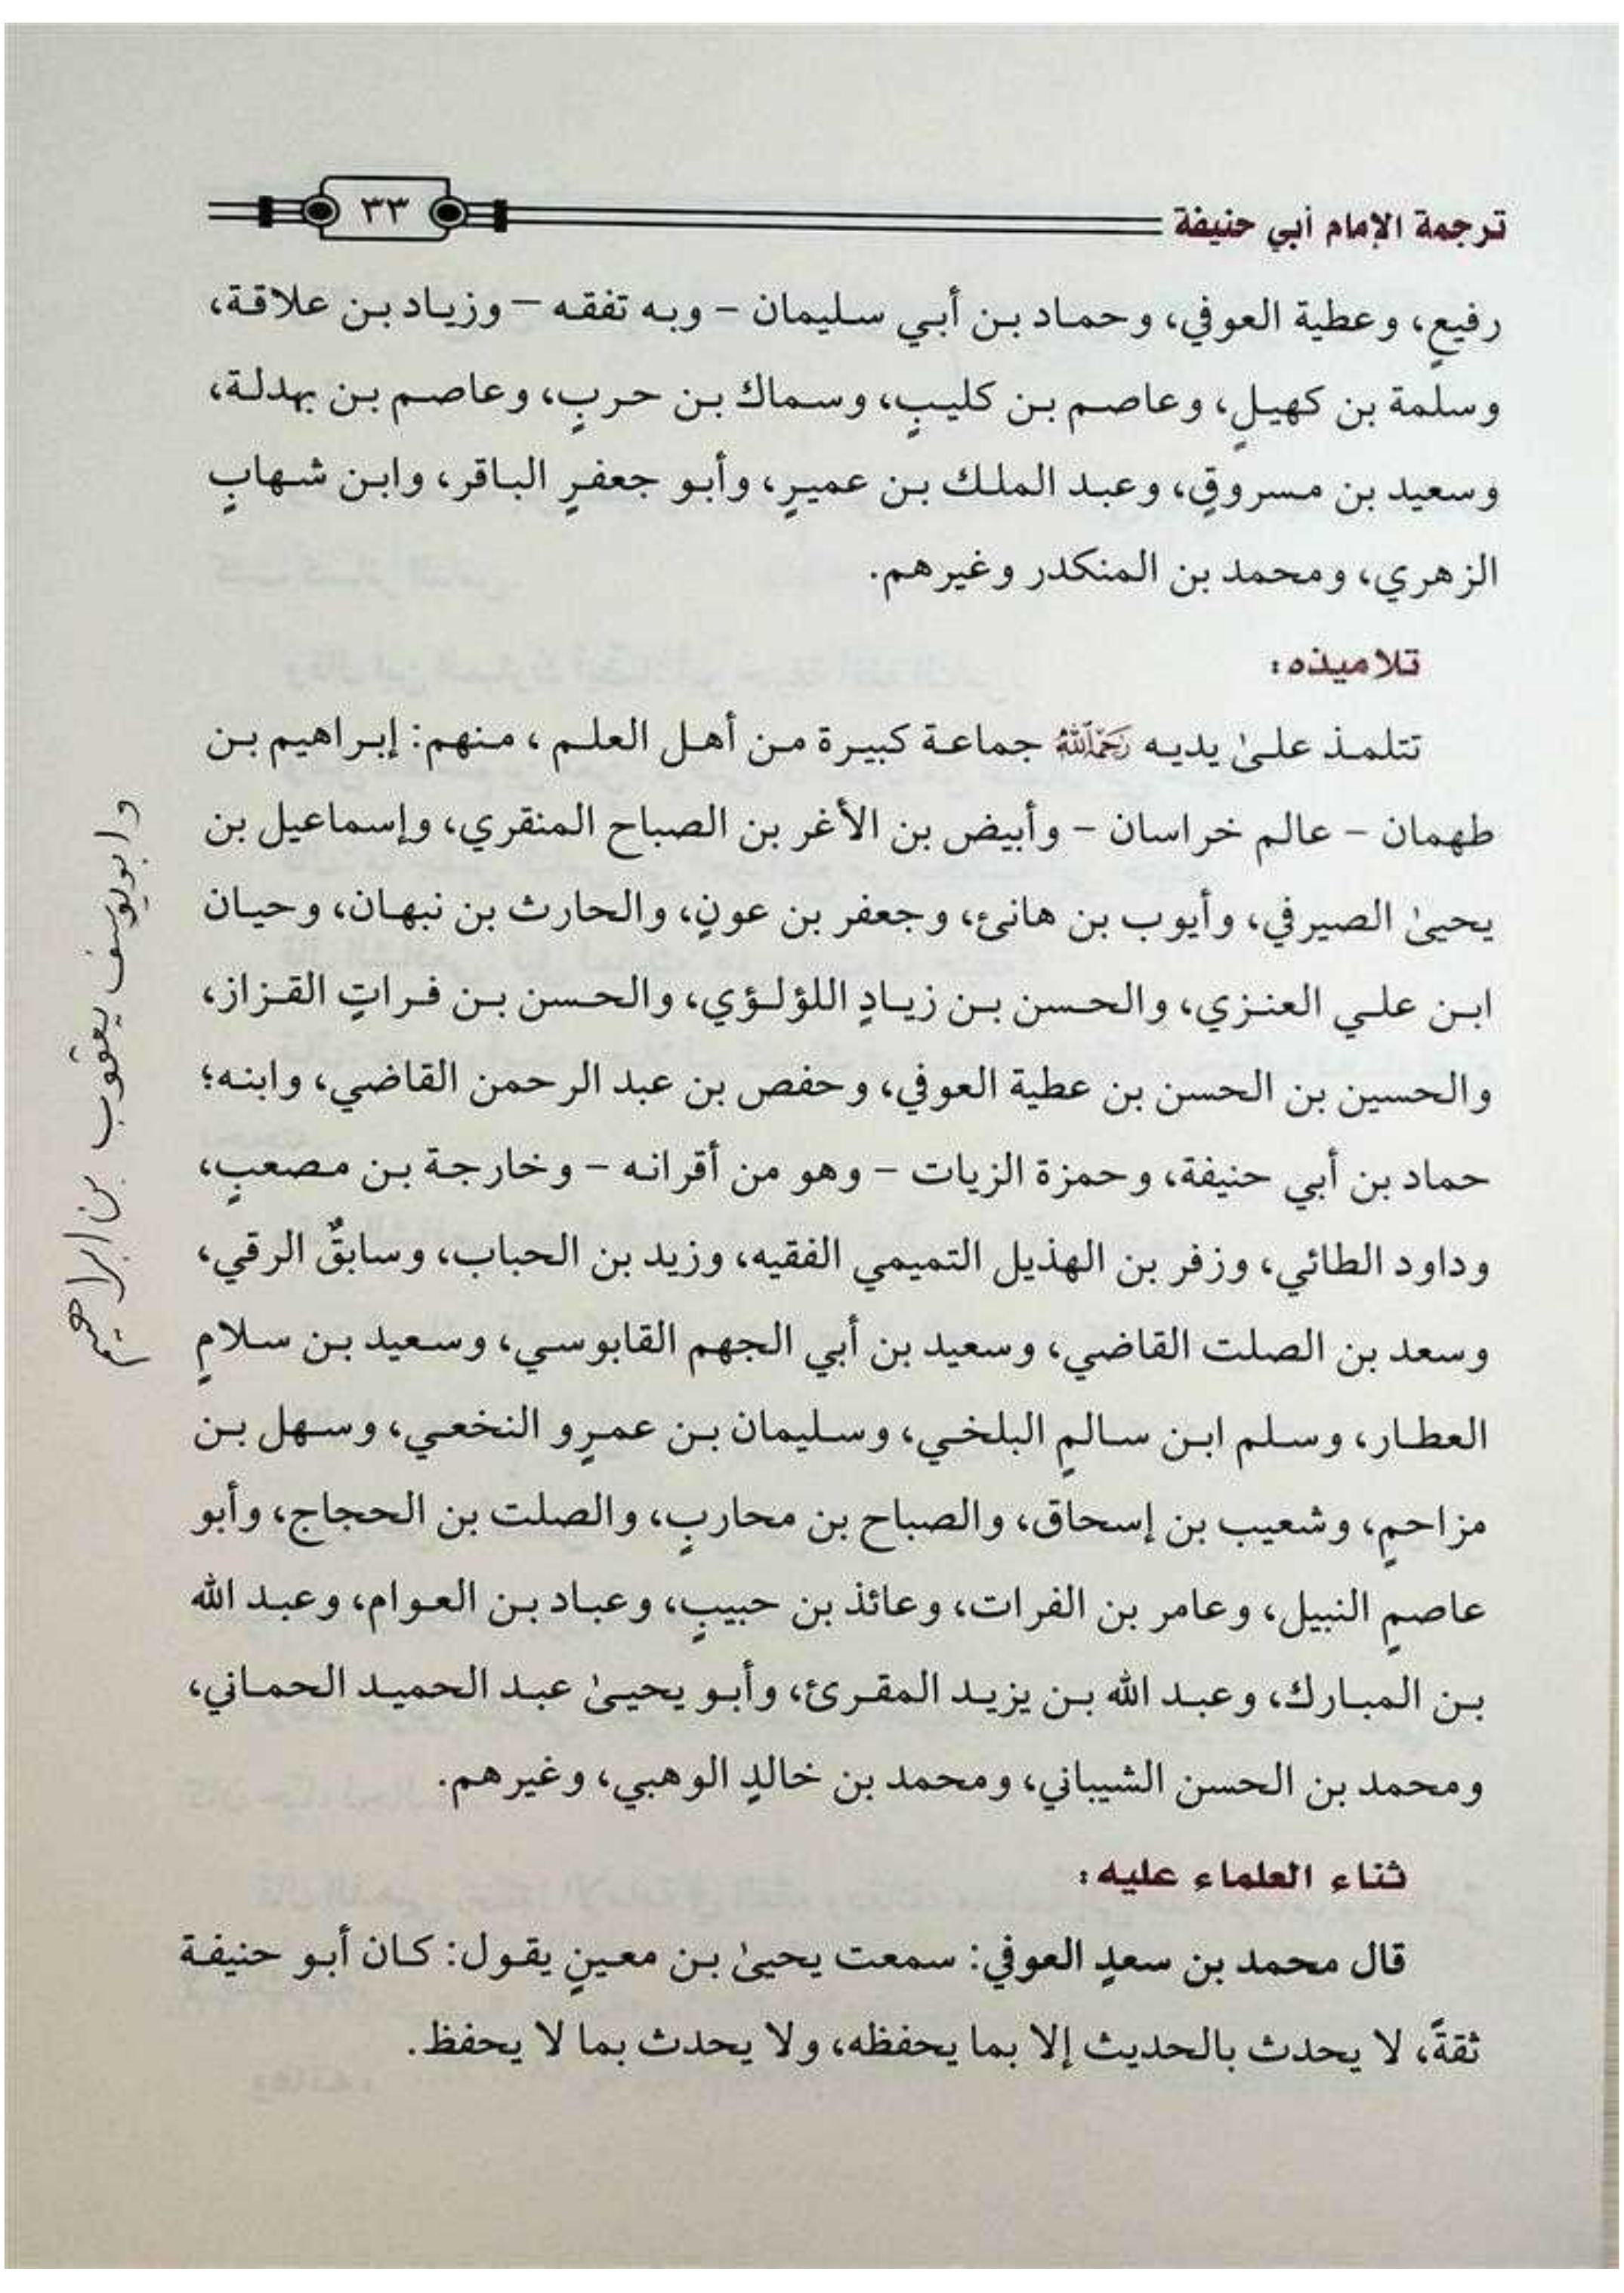 ترجمة الإمام أبي حنيفة ٣٣
رفيعٍ، وعطية العوفي، وحماد بن أبي سليمان – وبه تفقه – وزياد بن علاقة،
وسلمة بن كهيلٍ، وعاصم بن كليبٍ، وسماك بن حربٍ، وعاصم بن بهدلة،
وسعيد بن مسروقٍ، وعبد الملك بن عميرٍ، وأبو جعفرٍ الباقر، وابن شهابٍ
الزهري، ومحمد بن المنكدر وغيرهم.
تلاميذه:
تتلمذ علىٰ يديه رَحِمَهُ اللَّهُ جماعة كبيرة من أهل العلم، منهم: إبراهيم بن
طهمان – عالم خراسان – وأبيض بن الأغر بن الصباح المنقري، وإسماعيل بن
يحيىٰ الصيرفي، وأيوب بن هانئ، وجعفر بن عونٍ، والحارث بن نبهان، وحيان
ابن علي العنزي، والحسن بن زيادٍ اللؤلؤي، والحسن بن فراتٍ القزاز،
والحسين بن الحسن بن عطية العوفي، وحفص بن عبد الرحمن القاضي، وابنه؛
حماد بن أبي حنيفة، وحمزة الزيات – وهو من أقرانه – وخارجة بن مصعبٍ،
وداود الطائي، وزفر بن الهذيل التميمي الفقيه، وزيد بن الحباب، وسابقٌ الرقي،
وسعد بن الصلت القاضي، وسعيد بن أبي الجهم القابوسي، وسعيد بن سلامٍ
العطار، وسلم ابن سالمٍ البلخي، وسليمان بن عمرٍو النخعي، وسهل بن
مزاحمٍ، وشعيب بن إسحاق، والصباح بن محاربٍ، والصلت بن الحجاج، وأبو
عاصمٍ النبيل، وعامر بن الفرات، وعائذ بن حبيبٍ، وعباد بن العوام، وعبد الله
بن المبارك، وعبد الله بن يزيد المقرئ، وأبو يحيىٰ عبد الحميد الحماني،
ومحمد بن الحسن الشيباني، ومحمد بن خالدٍ الوهبي، وغيرهم.
ثناء العلماء عليه:
قال محمد بن سعدٍ العوفي: سمعت يحيىٰ بن معينٍ يقول: كان أبو حنيفة
ثقةً، لا يحدث بالحديث إلا بما يحفظه، ولا يحدث بما لا يحفظ.
وابويوسف يعقوب بن ابراهيم